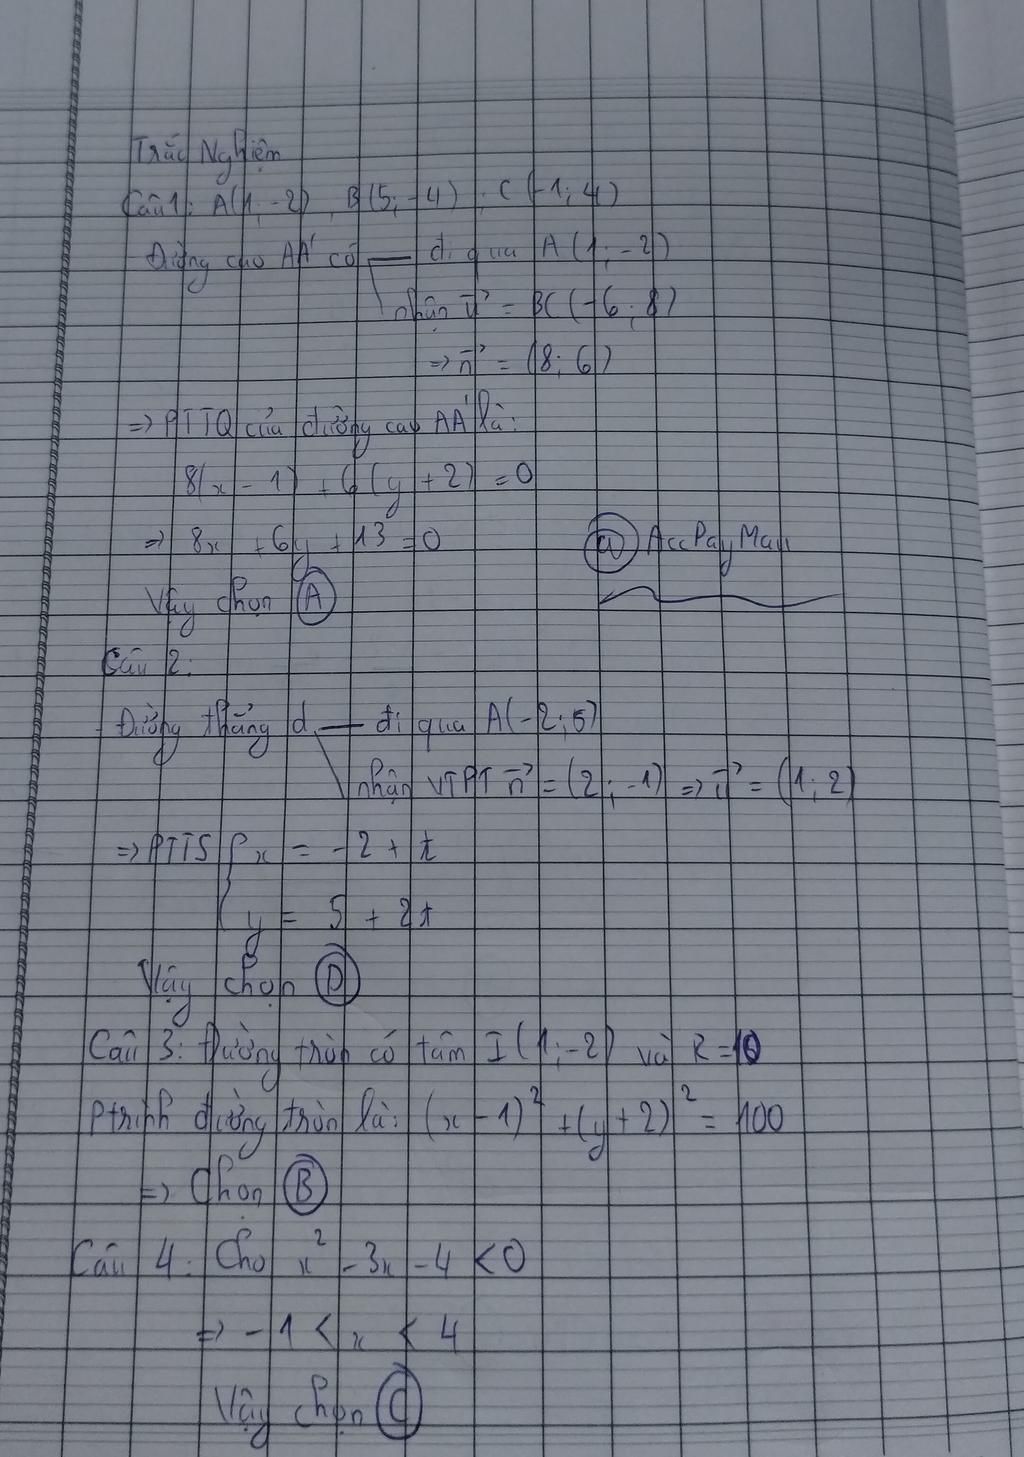 Trắc Nghiệm
Câu 1: A(1; -2), B(5; -4), C(-1; 4)
Đường cao AA' có đi qua A(1; -2)
nhận u⃗ = BC(-6; 8)
=> n⃗ = (8; 6)
=> PTTQ của đường cao AA' là:
8(x - 1) + 6(y + 2) = 0
=> 8x + 6y + 13 = 0
@ AccPayMan
Vậy chọn A
Câu 2:
Đường thẳng d đi qua A(-2; 5)
nhận VTPT n⃗ = (2; -1) => u⃗ = (1; 2)
=> PTTS { x = -2 + t
y = 5 + 2t
Vậy chọn D
Câu 3: Đường tròn có tâm I(1; -2) và R = 10
Ptrình đường tròn là: (x - 1)² + (y + 2)² = 100
=> Chọn B
Câu 4: Cho x² - 3x - 4 < 0
=> -1 < x < 4
Vậy chọn C